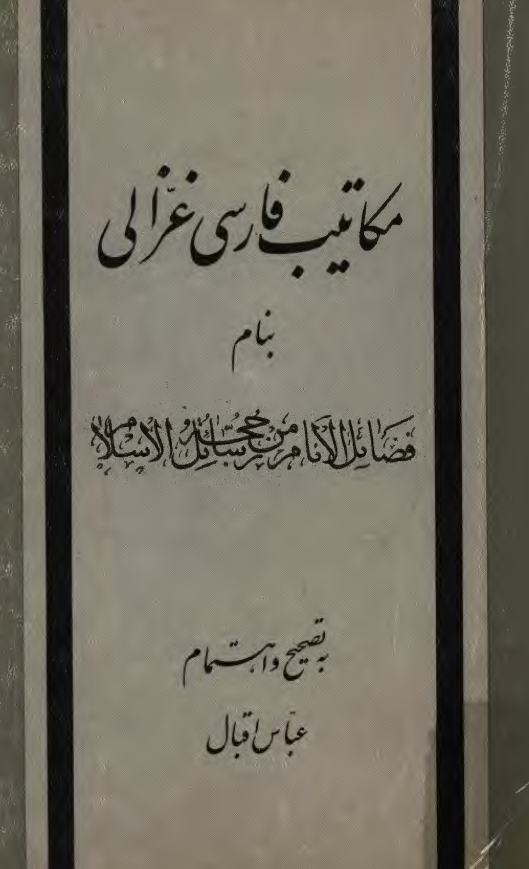 مکاتیب فارسی غزّالی
بنام
فضائل الأنام من رسائل حجة الإسلام
به تصحیح و اهتمام
عبّاس اقبال